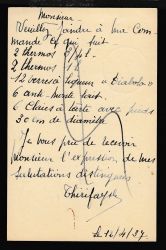 Monsieur
Veuillez joindre à ma Com
mande ce qui suit
2 thermos
2 thermos
12 verres à liqueur « Diabolo »
6 anti-monte-lait
6 à tarte avec pieds
30 cm de diamètre
Je vous prie de recevoir
Monsieur l'expression de mes
salutations distinguées

Le 12/4/37